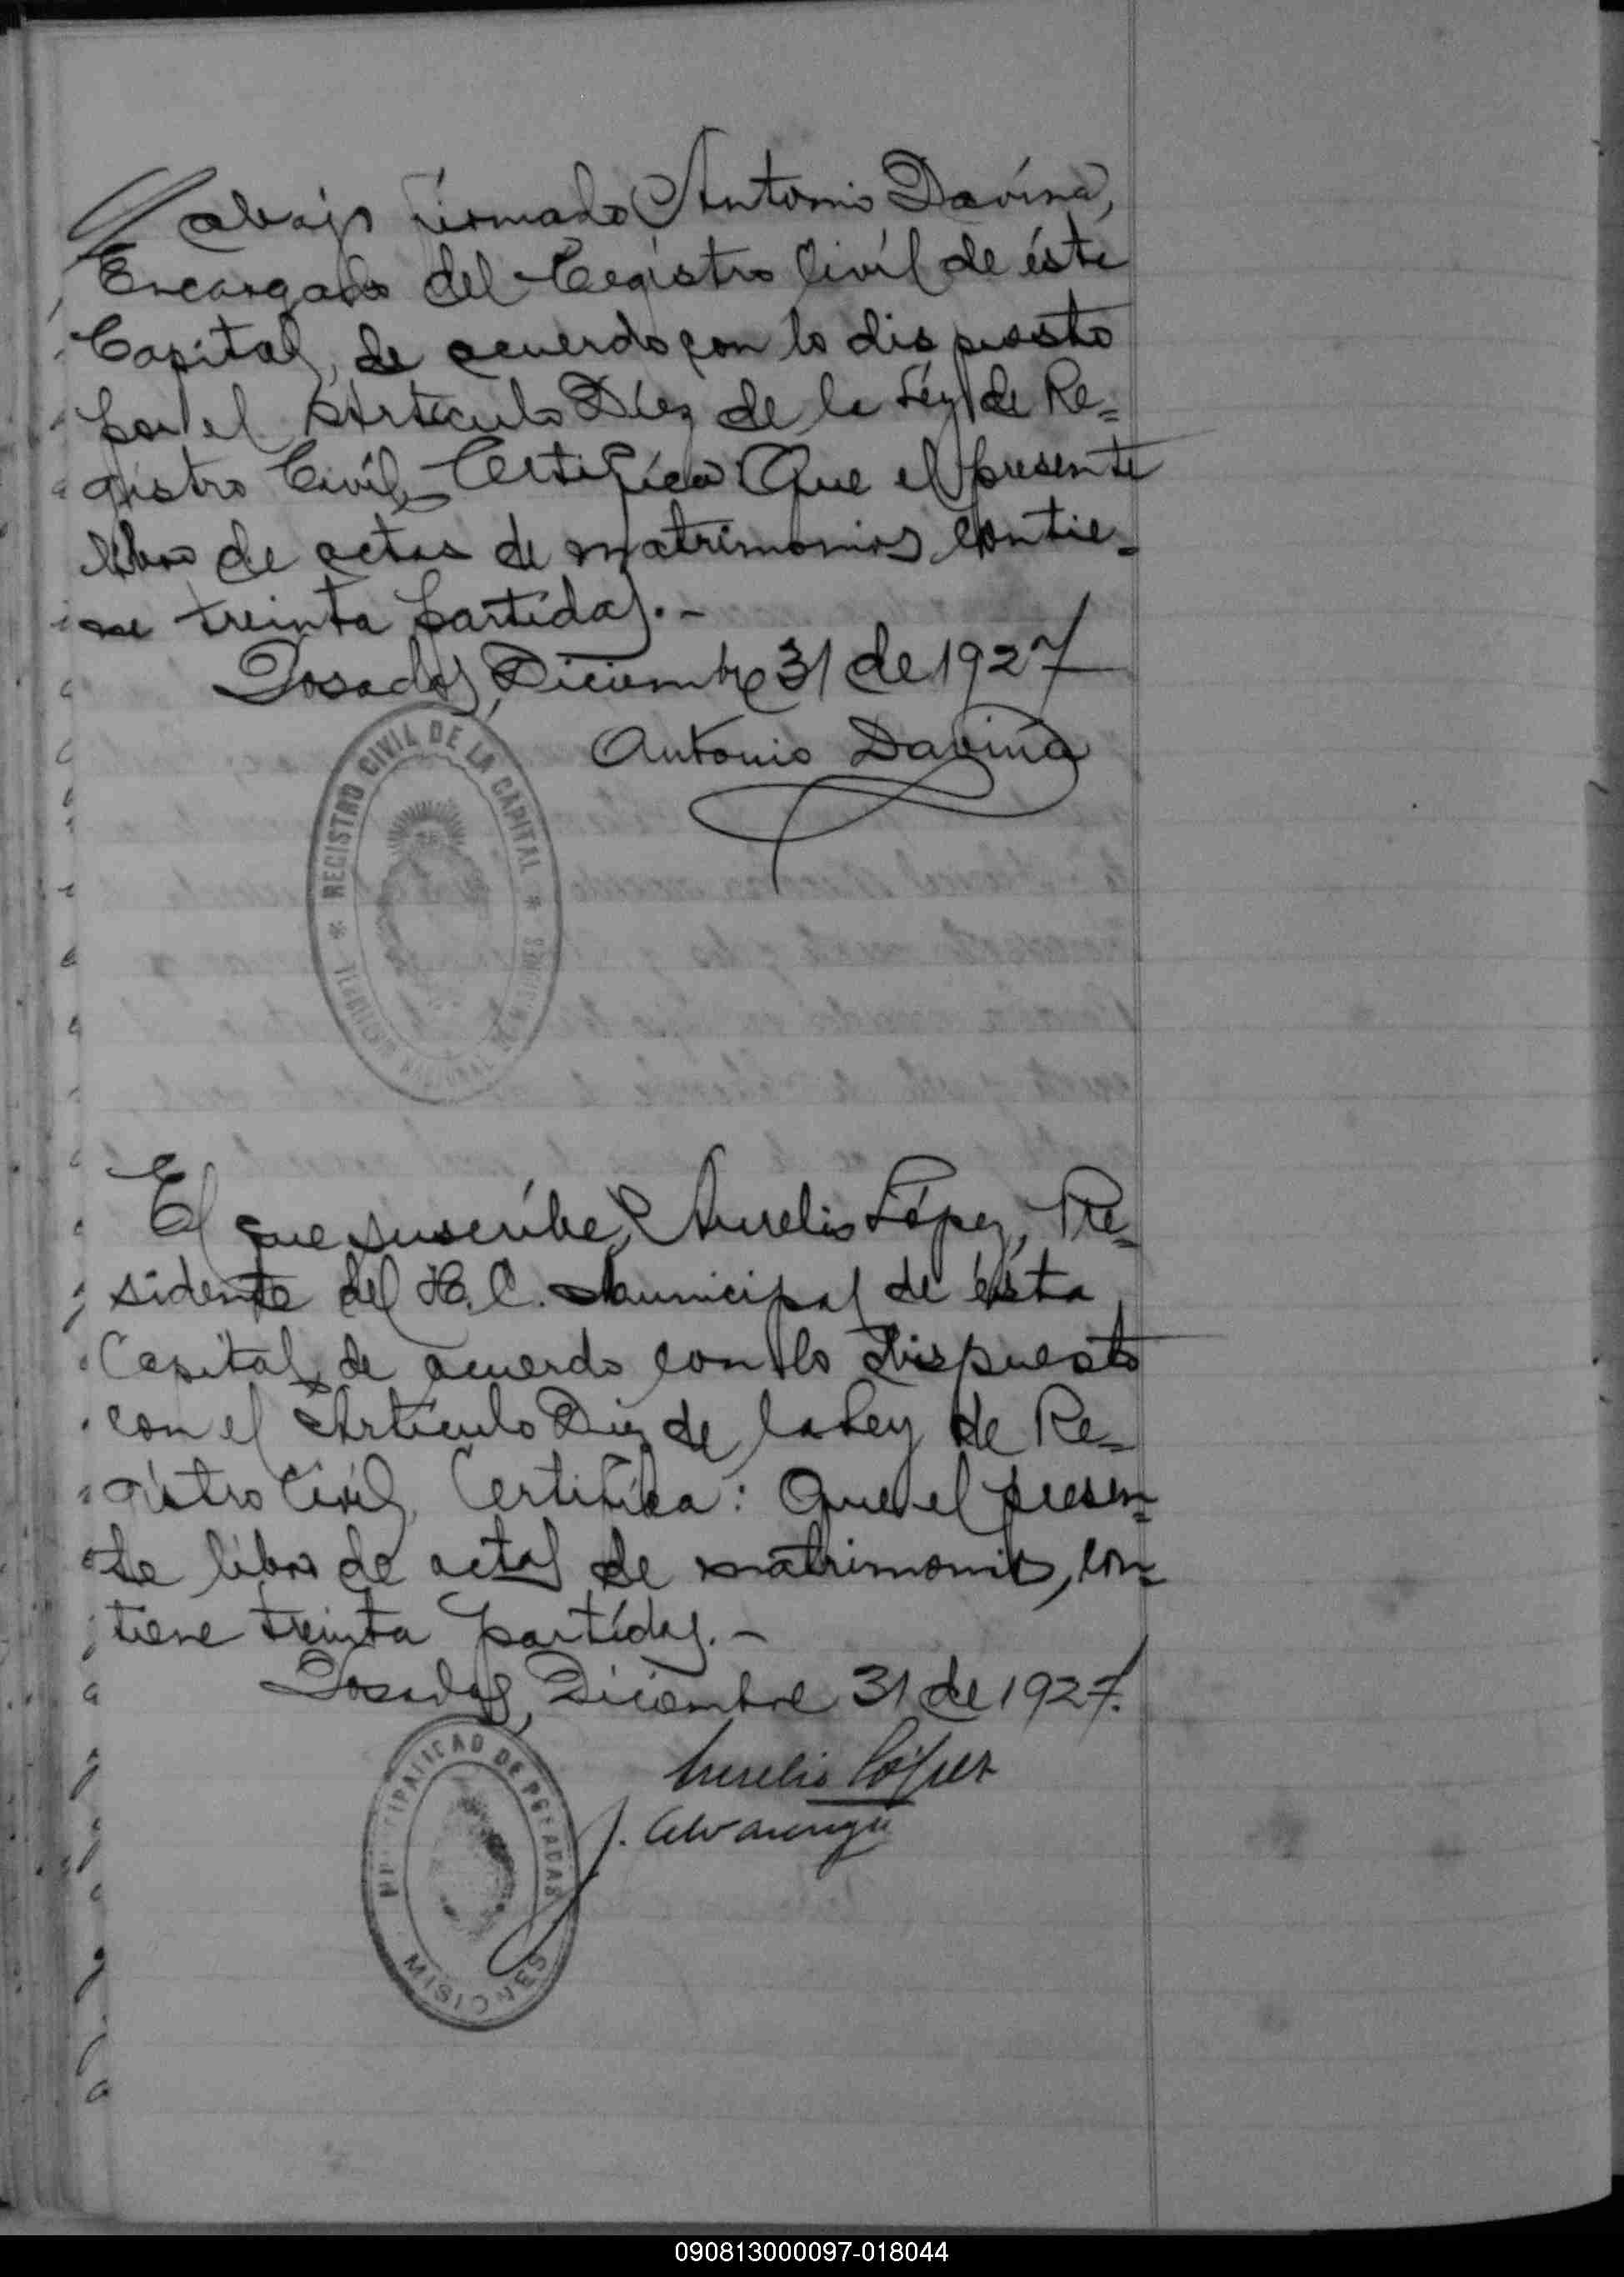 El abajo firmado Antonio Daviña,
Encargado del Registro Civil de ésta
Capital, de acuerdo con lo dispuesto
por el Artículo Diez de la Ley de Re=
gistro Civil, Certifica: Que el presente
libro de actas de matrimonios contie=
ne treinta partidas.-
Posadas, Diciembre 31 de 1927
Antonio Daviña
REGISTRO CIVIL DE LA CAPITAL
* TERRITORIO NACIONAL DE MISIONES *
El que suscribe, Aurelio López, Pre=
sidente del H. C. Municipal de ésta
Capital, de acuerdo con lo dispuesto
con el Artículo Diez de la Ley de Re=
gistro Civil, Certifica: Que el presen=
te libro de actas de matrimonios, con=
tiene treinta partidas.-
Posadas, Diciembre 31 de 1927.
Aurelio López
J. Alvarenga
MUNICIPALIDAD DE POSADAS
MISIONES
090813000097-018044